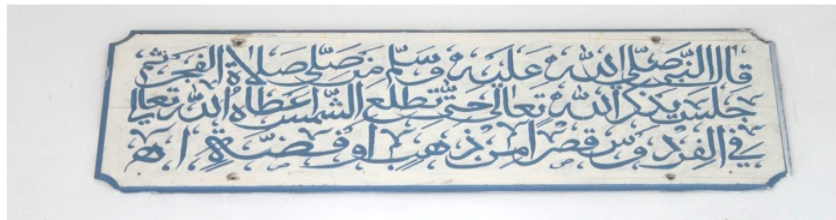 قال النبي صلى الله عليه وسلم من صلى صلاة الفجر ثم
جلس يذكر الله تعالى حتى تطلع الشمس اعطاه الله تعالى
في الفردوس قصرا من ذهب او فضة اه